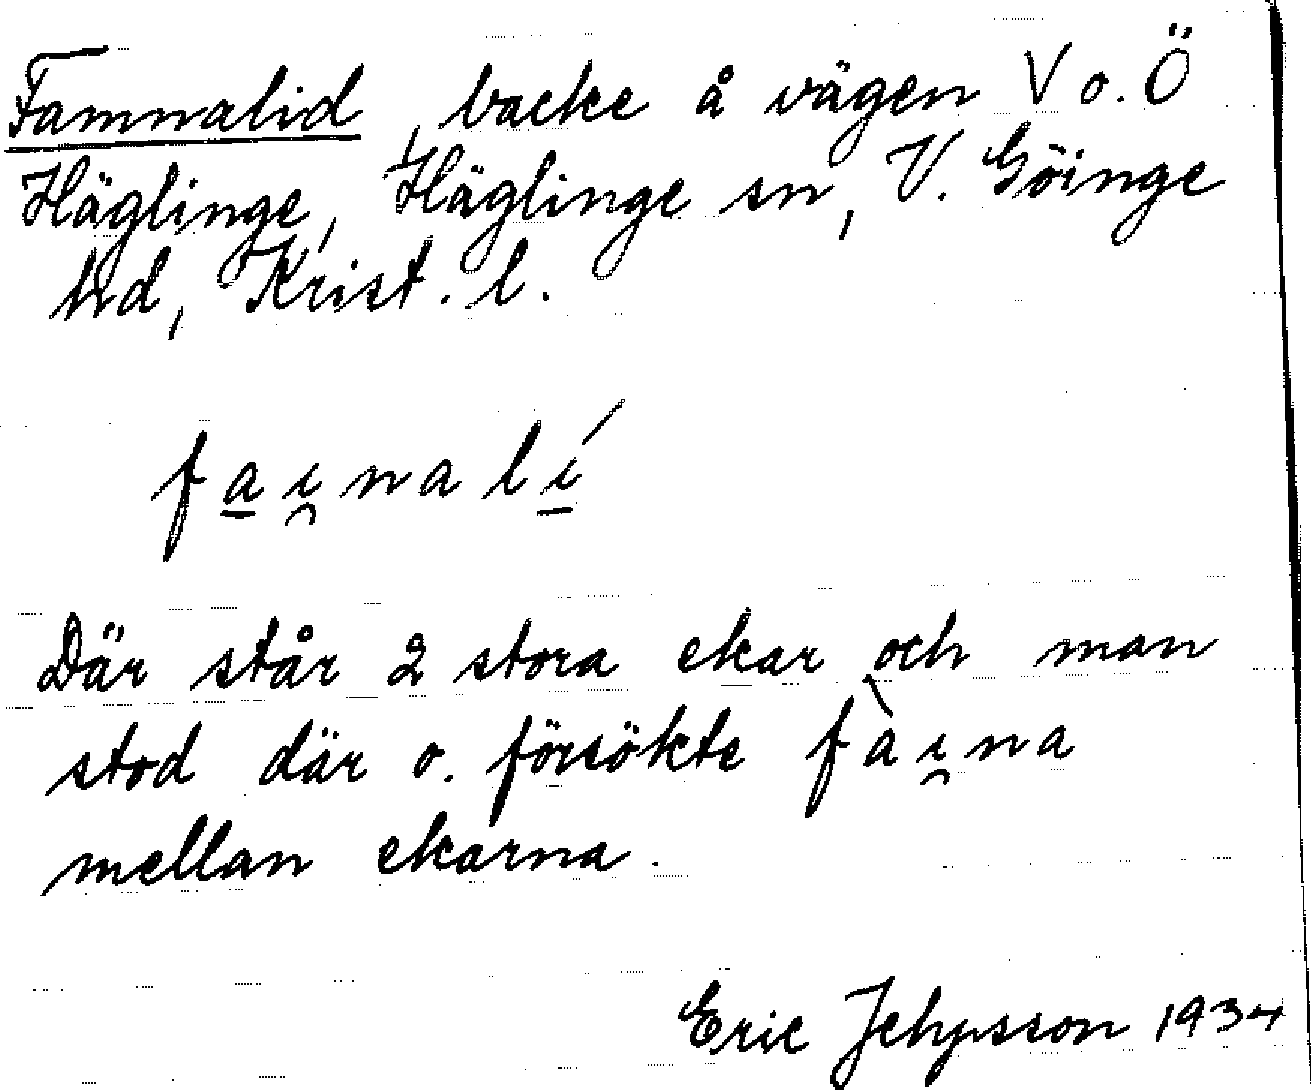 Famnalid, backe å vägen V o. Ö
Häglinge, Häglinge sn, V. Göinge
hd, Krist. l.
fa̲ı̯nalí̲
Där står 2 stora ekar och man
stod där o. försökte fàı̯na
mellan ekarna.
Eric Jehpsson 1934